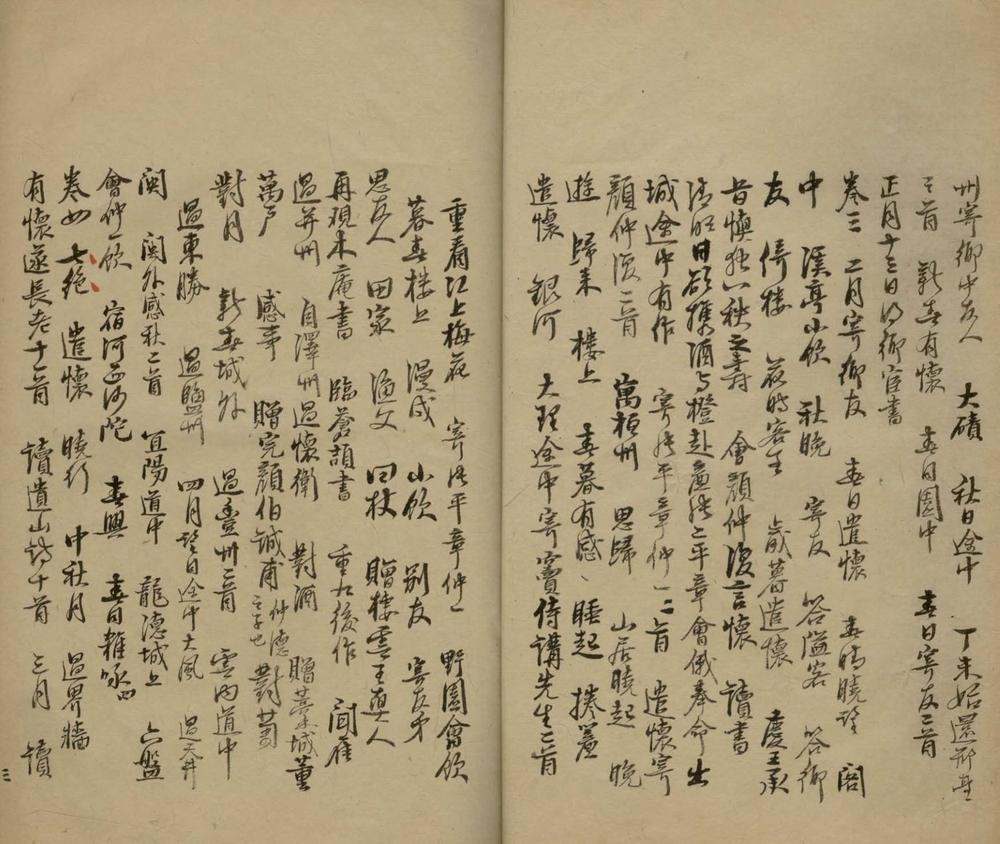 州寄鄉中友人 大磧 秋日途中 丁未始還邢臺
三首 新春有懷 春日園中 春日寄友二首
正月十三日 鄉 書
卷三 二月寄鄉友 春日遣懷 春晴曉望 閣
中 溪亭小飲 秋晚 寄友 答 客 答鄉
友 倚樓 客 歲暮遣懷 慶王承
旨慎獨八秩之壽 會顏仲復言懷 讀書
清明日欲攜酒與 赴廉 平章會 奉命出
城途中有作 寄張平章仲一二首 遣懷寄
顏仲復二首 寓桓州 思歸 山居曉起 晚
遊 歸來 樓上 春暮有感 睡起 捲簾
遣懷 銀河 大理途中寄竇侍講先生二首
重看江上梅花 寄張平章仲一 野園會飲
暮春樓上 漫成 小飲 別友 寄友弟
思友人 田家 漁父 回杖 贈樓雲王真人
再觀木庵書 臨蒼頡書 重九後作 聞雁
過并州 自澤州過懷衛 對酒 贈藁城董
萬戶 感事 贈完顏伯誠甫仲德之子也 對菊
對月 新春城外 過豐州二首 雲內道中
過東勝 過鹽州 四月望日途中大風 過天井
關 關外感秋二首 宜陽道中 龍德城上 六盤
會仲一飲 宿河西沙陀 春興 春日雜咏四
卷四 七絕 遣懷 曉行 中秋月 過界牆
有懷遂長老十一首 讀遺山詩十首 三月 讀
三